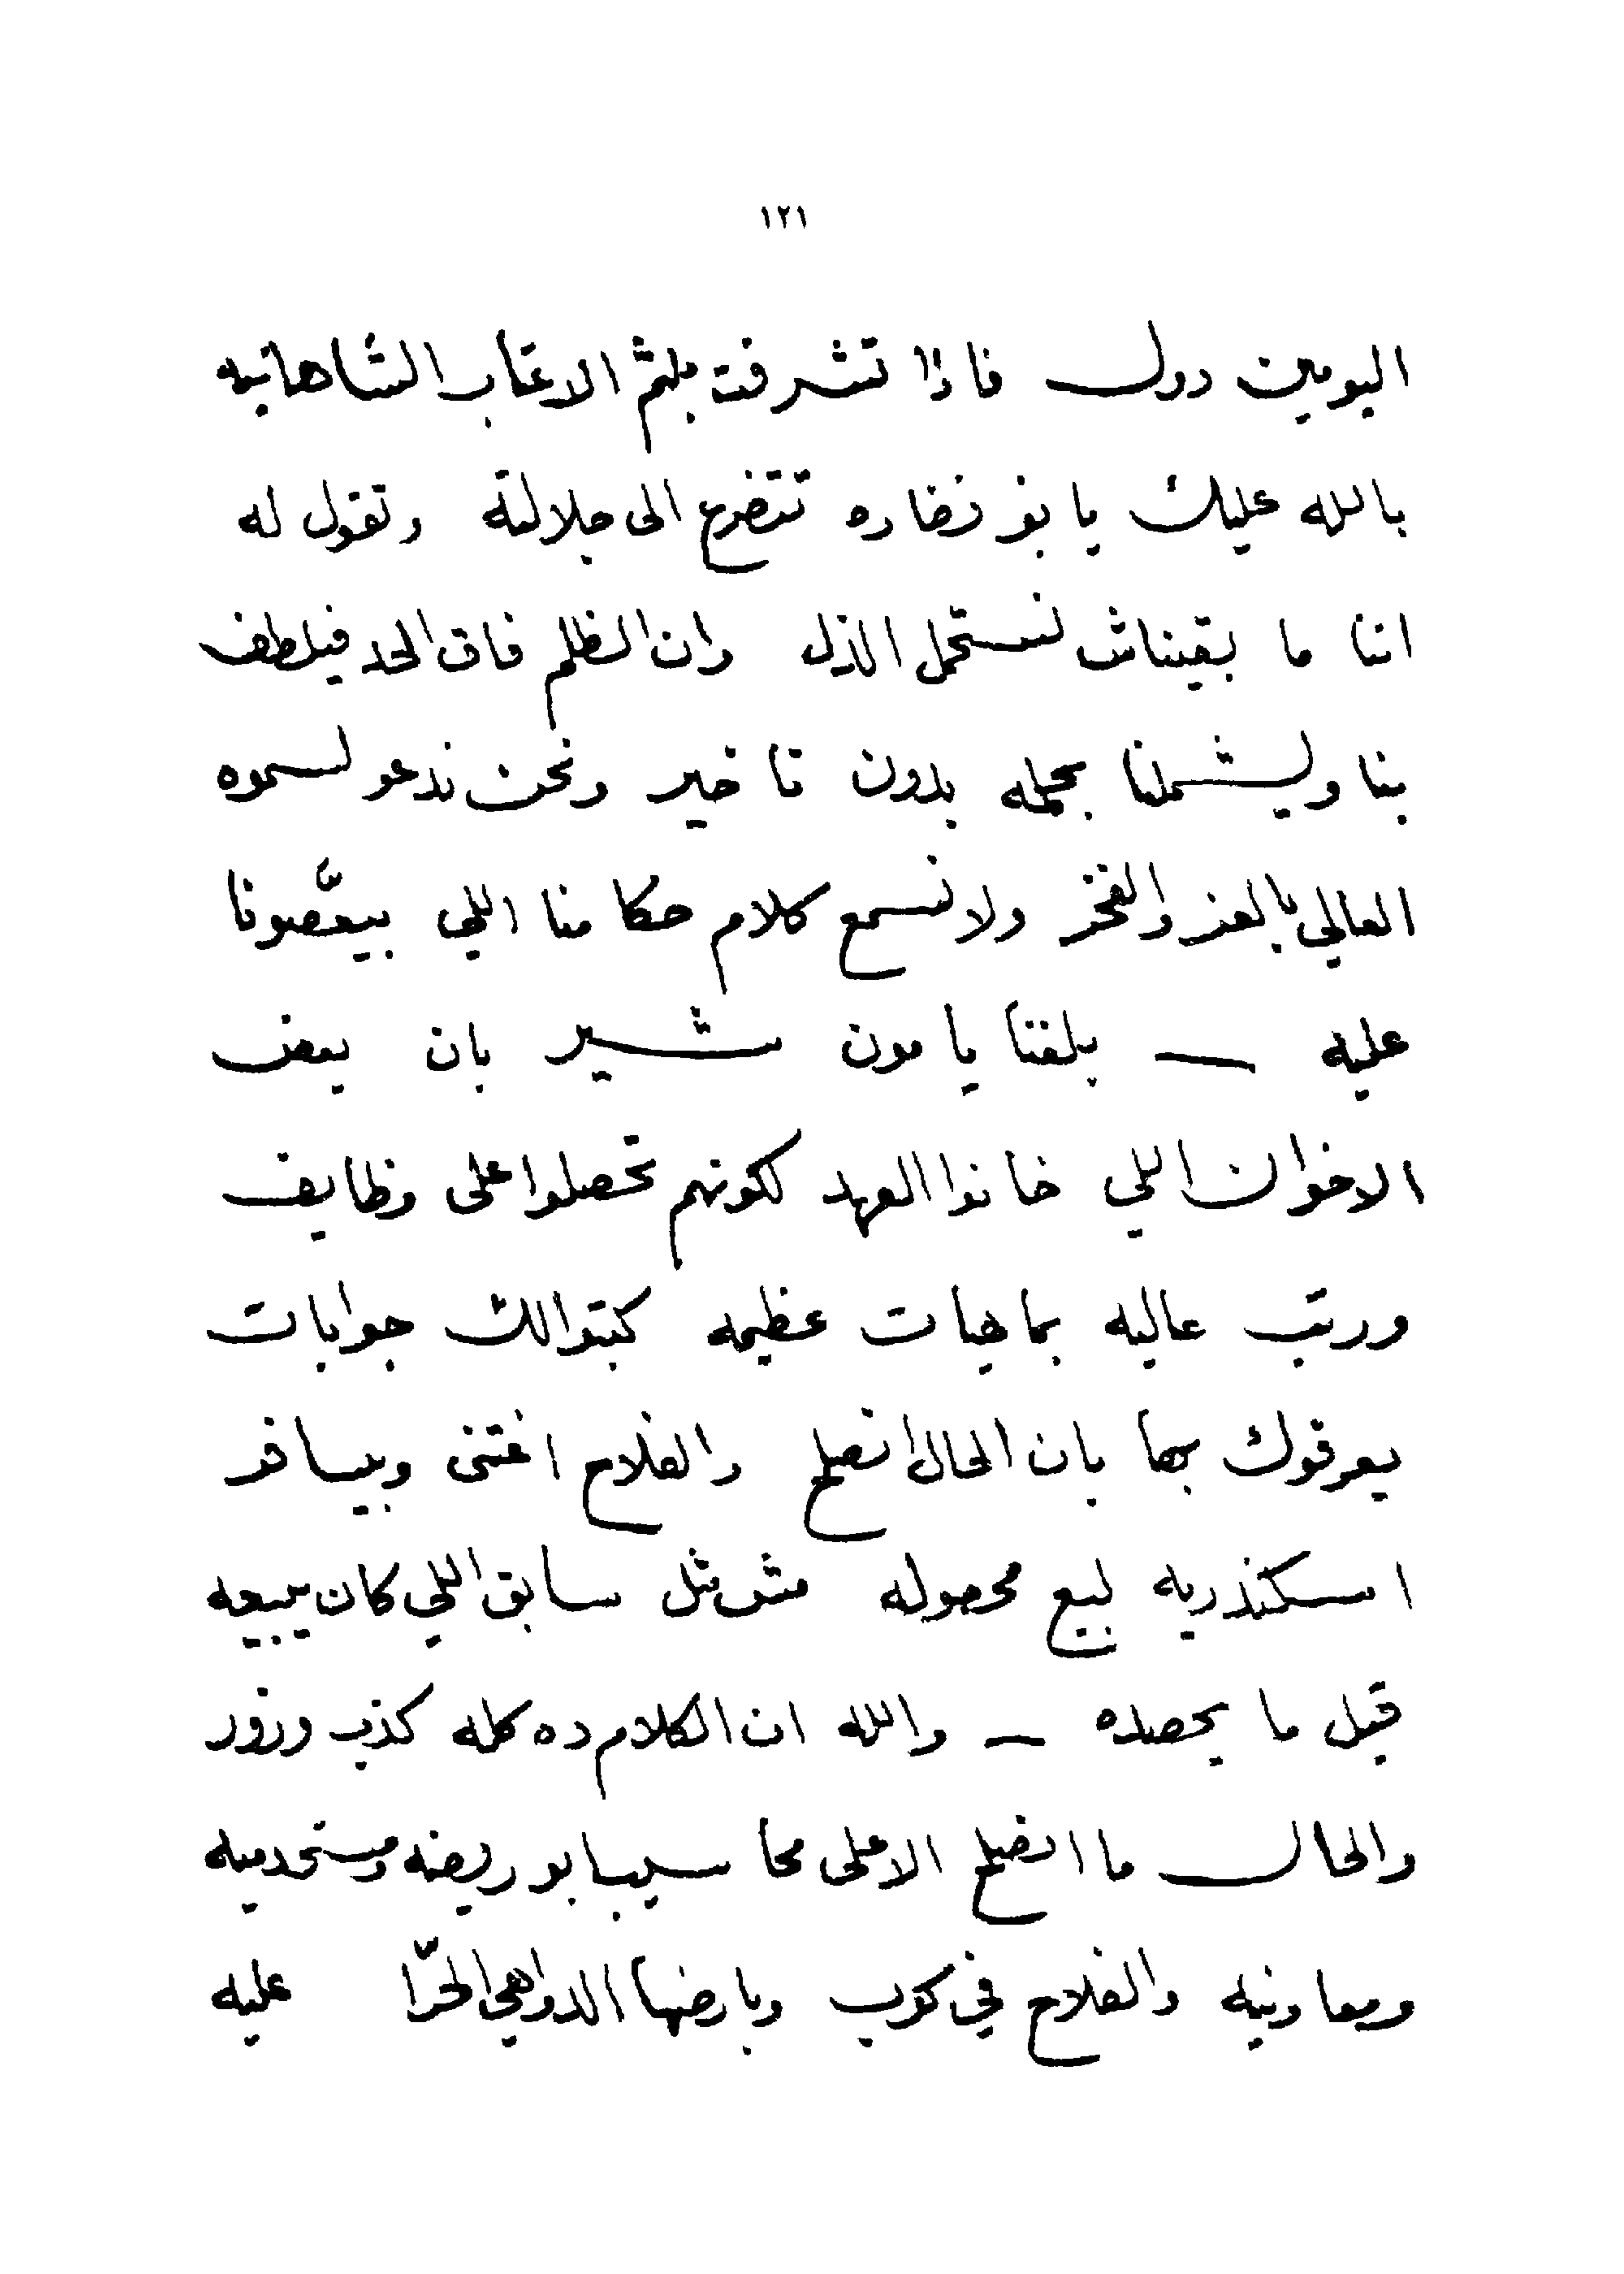 ١٢١
اليومين دول فاذا تشرفت بلثم الاعتاب الشاهانيه
بالله عليك يا بو نضاره تتضرع الى جلالته وتقول له
اننا ما بقيناش نستحمل الذل وان الظلم فاق الحد فيلطف
بنا ويشملنا بحمله بدون تاخير ونحن ندعو لسموه
العالي بالعز والفخر ولا نسمع كلام حكامنا اللي بيعصّونا
عليه — بلغنا يا مون شير بان بعض
الاخوان اللي خانوا العهد لكونهم تحصلوا على وظايف
ورتب عاليه بماهيات عظيمه كتبوا لك جوابات
يعرفوك بها بان الحال انصلح والفلاح اغتنى وبيسافر
اسكندريه لبيع محصوله مش مثل سابق اللي كان يبيعه
قبل ما يحصده — والله ان الكلام ده كله كذب وزور
والحال ما انصلح الا على محاسيب ابو ريضه ومستخدمينه
ومعاونينه والفلاح في كرب وبارضها الدواهي الحرّا عليه